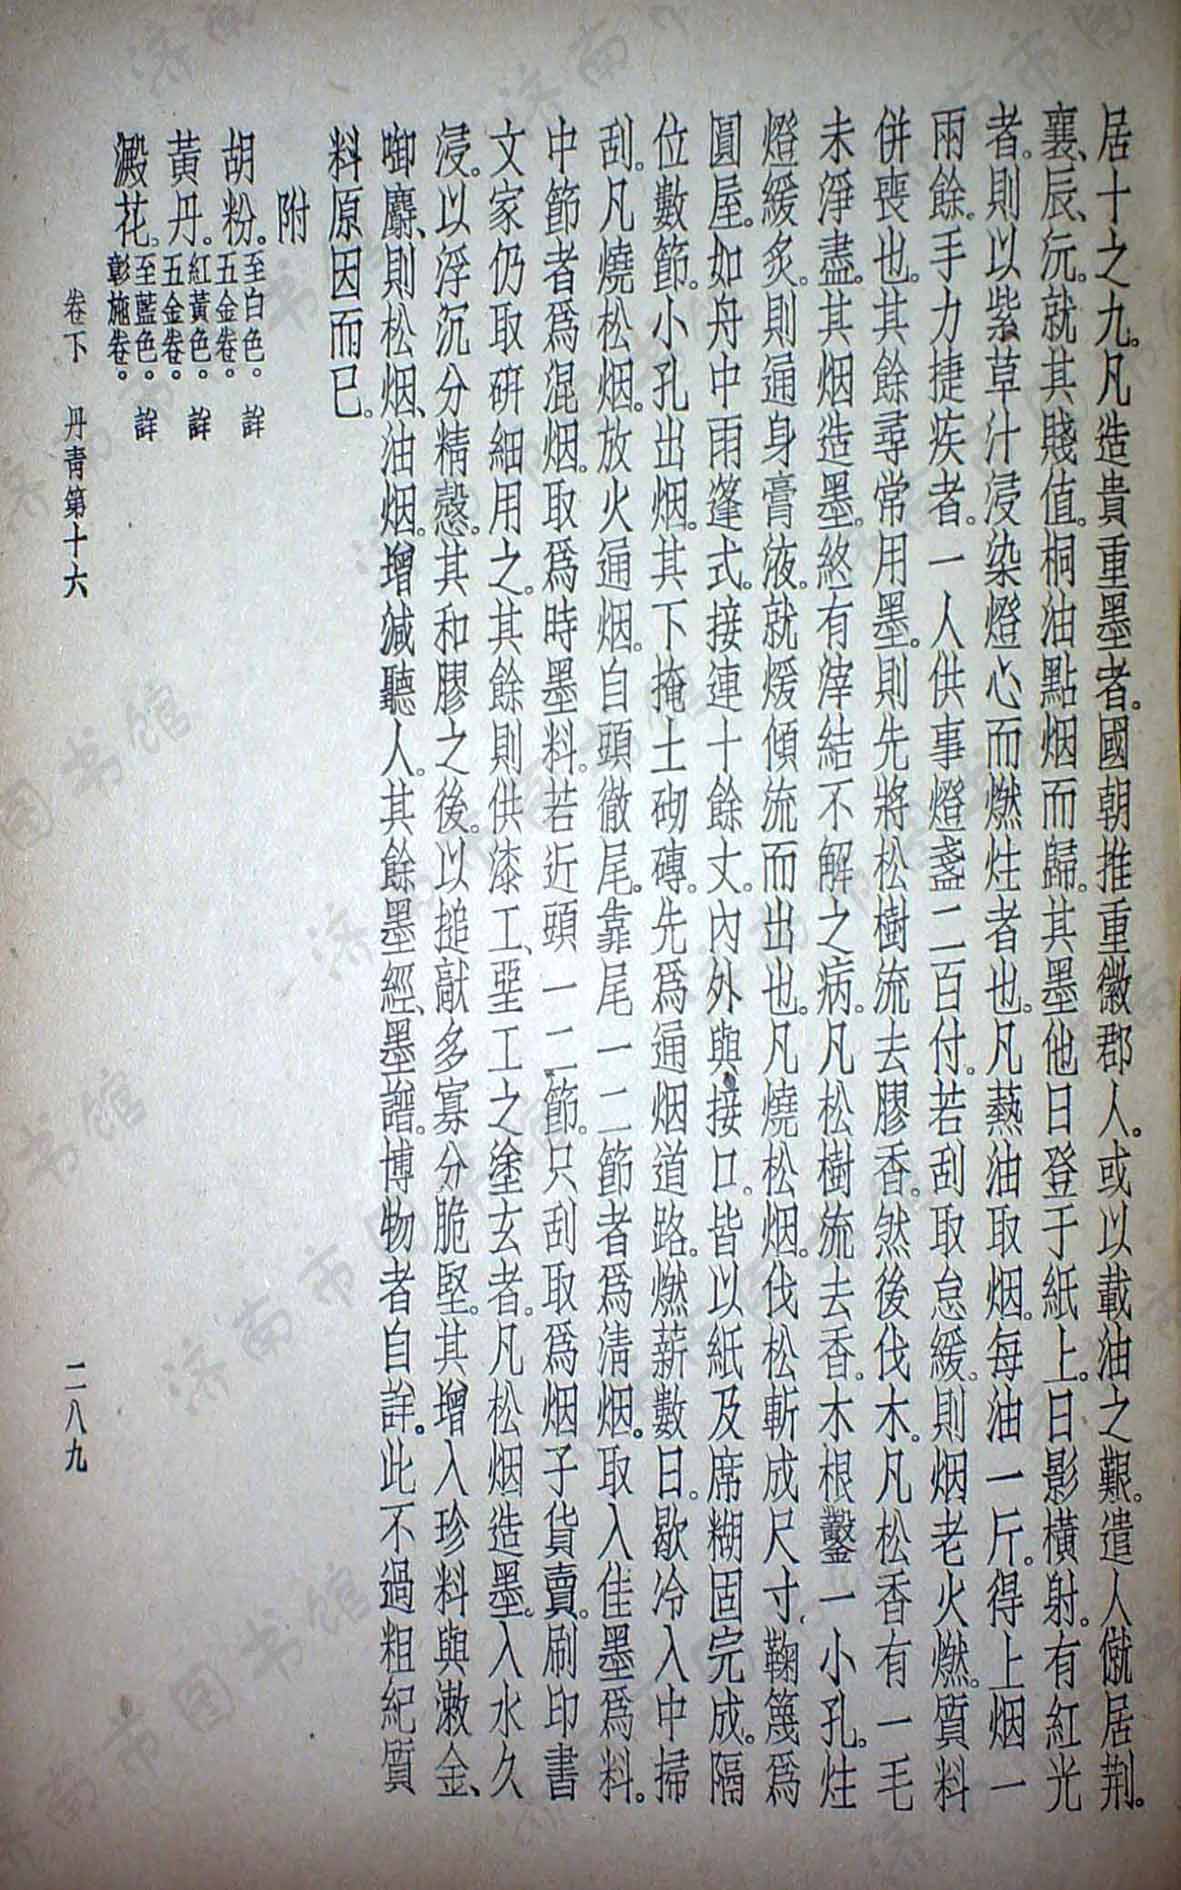 居十之九。凡造貴重墨者。國朝推重徽郡人。或以載油之艱。遣人僦居荆。
襄、辰、沅。就其賤值。桐油點烟而歸。其墨他日登于紙上。日影橫射。有紅光
者。則以紫草汁浸染燈心而燃炷者也。凡爇油取烟。每油一斤。得上烟一
兩餘。手力捷疾者。一人供事燈盞二百付。若刮取怠緩。則烟老火燃。質料
併喪也。其餘尋常用墨。則先將松樹流去膠香。然後伐木。凡松香有一毛
未淨盡。其烟造墨。終有滓結不解之病。凡松樹流去香。木根鑿一小孔。炷
燈緩炙。則通身膏液。就煖傾流而出也。凡燒松烟。伐松斬成尺寸、鞠篾爲
圓屋。如舟中雨篷式。接連十餘丈。內外與接口。皆以紙及席糊固完成。隔
位數節。小孔出烟。其下掩土砌磚。先爲通烟道路。燃薪數日。歇冷入中掃
刮。凡燒松烟。放火通烟。自頭徹尾。靠尾一二節者爲淸烟。取入佳墨爲料。
中節者爲混烟。取爲時墨料。若近頭一二節。只刮取爲烟子貨賣。刷印書
文家仍取硏細用之。其餘則供漆工、堊工之塗玄者。凡松烟造墨。入水久
浸。以浮沉分精慤。其和膠之後。以搥敲多寡分脆堅。其增入珍料與漱金、
啣麝、則松烟、油烟。增減聽人。其餘墨經、墨譜。博物者自詳。此不過粗紀質
料原因而已。
附
胡粉。至白色。詳五金卷。
黃丹。紅黃色。詳五金卷。
澱花。至藍色。詳彰施卷。
卷下 丹青第十六
二八九